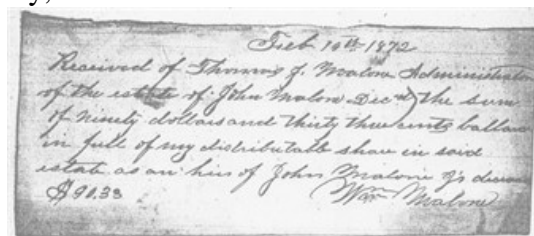 Feb 10th 1872
Received of Thomas J. Malone Administrator
of the estate of John Malone Decd) the sum
of ninety dollars and thirty three cents ballance
in full of my distributable share in said
estate as an heir of John Malone
$90.33 Wm Malone